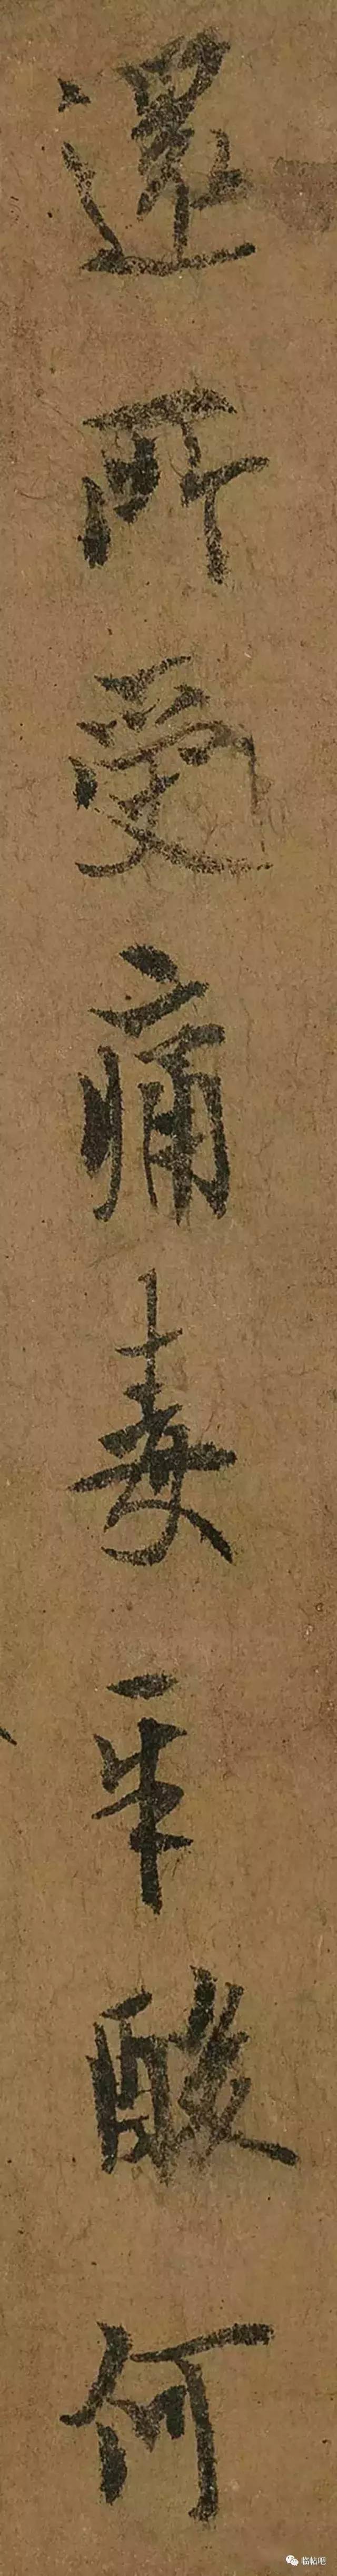 還所受痛毒辛酸何
临帖吧